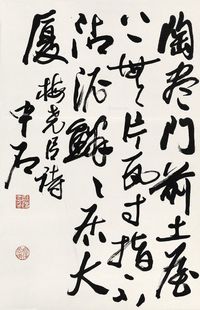 陶尽门前土屋
上無片瓦十指不
沾泥鳞々居大
厦
梅尧臣诗
中石